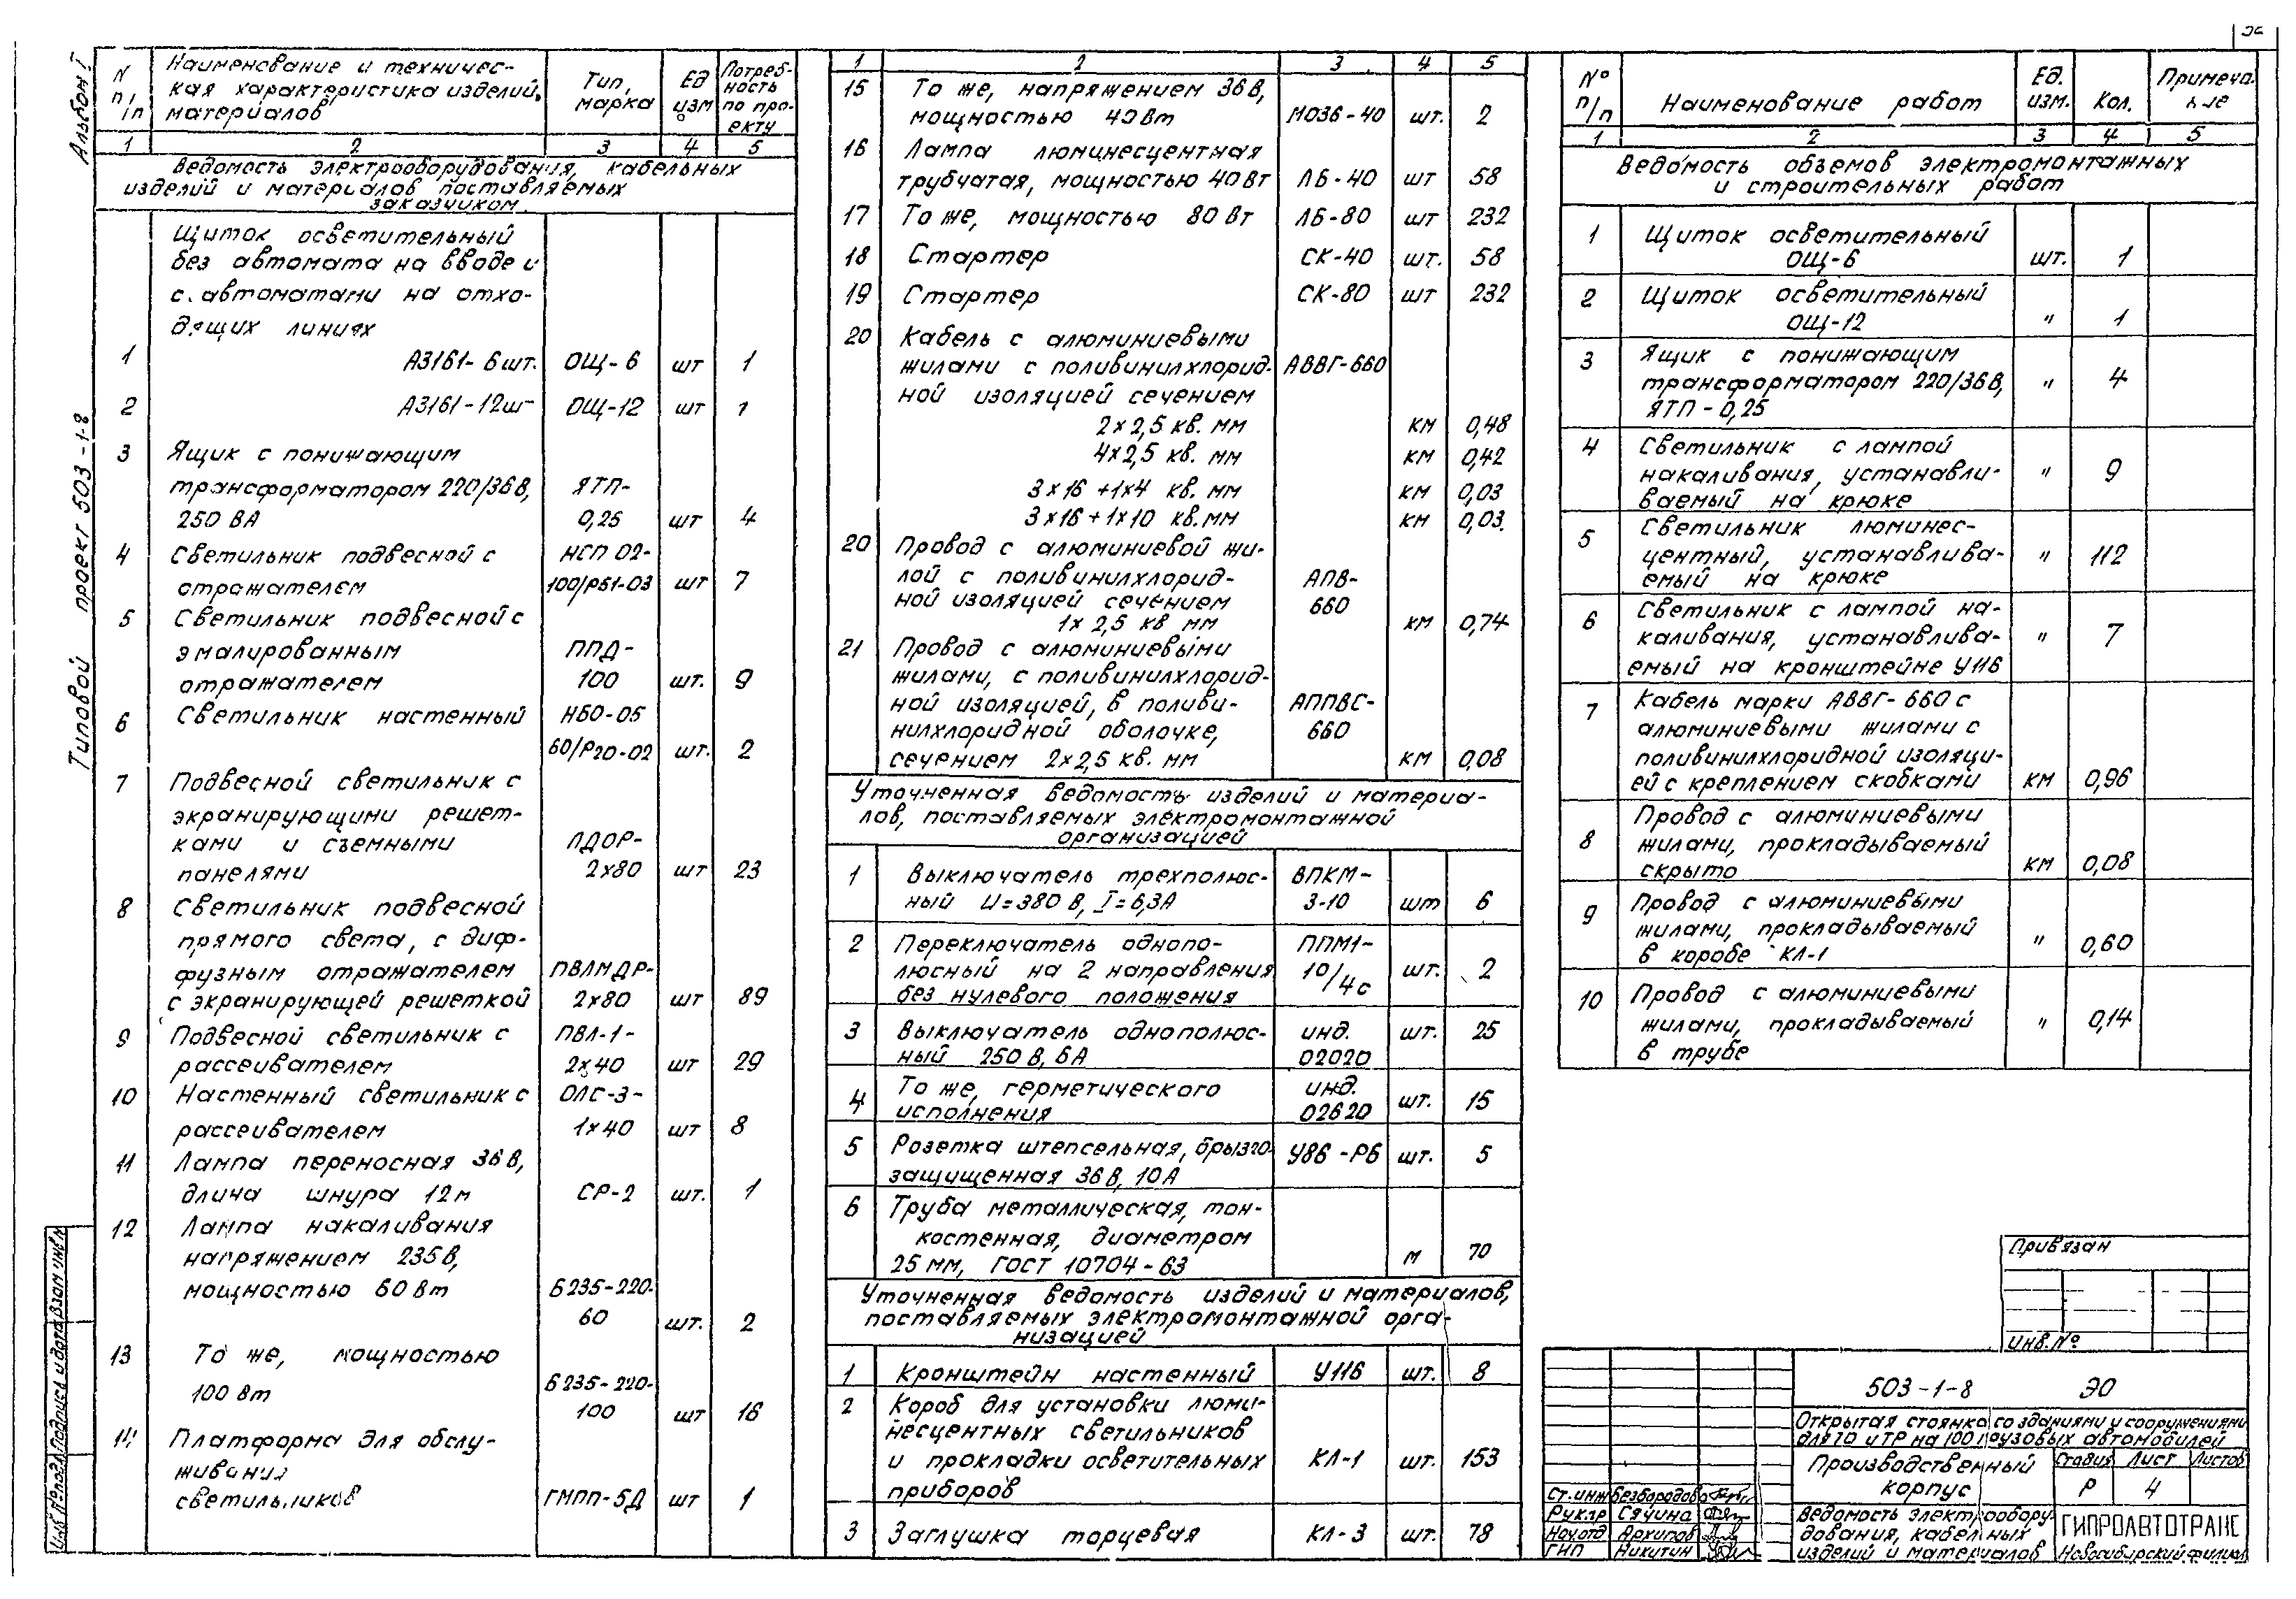 Альбом I
Типовой проект 503-1-8
N п/п
Наименование и техничес-
кая характеристика изделий,
материалов
Тип,
марка
Ед
изм
Потреб-
ность
по про-
екту
1 2 3 4 5
Ведомость электрооборудования, кабельных
изделий и материалов поставляемых
заказчиком
Щиток осветительный
без автомата на вводе и
с автоматами на отхо-
дящих линиях
1 А3161-6шт. ОЩ-6 шт 1
2 А3161-12шт ОЩ-12 шт 1
3 Ящик с понижающим
трансформатором 220/36В, ЯТП-
250 ВА 0,25 шт 4
4 Светильник подвесной с НСП 02-
отражателем 100/Р51-03 шт 7
5 Светильник подвесной с
эмалированным ППД-
отражателем 100 шт. 9
6 Светильник настенный НБО-05
60/Р20-02 шт. 2
7 Подвесной светильник с
экранирующими решет-
ками и съемными ПДОР-
панелями 2х80 шт 23
8 Светильник подвесной
прямого света, с диф-
фузным отражателем ПВЛМДР-
с экранирующей решеткой 2х80 шт 89
9 Подвесной светильник с ПВЛ-1-
рассеивателем 2х40 шт 29
10 Настенный светильник с ОЛС-3-
рассеивателем 1х40 шт 8
11 Лампа переносная 36В,
длина шнура 12м СР-2 шт. 1
12 Лампа накаливания
напряжением 235В,
мощностью 60Вт Б235-220-
60 шт. 2
13 То же, мощностью
100 Вт Б235-220-
100 шт 16
14 Платформа для обслу-
живания
светильников ГМПП-5Д шт 1
1 2 3 4 5
15 То же, напряжением 36В,
мощностью 40Вт МО36-40 шт. 2
16 Лампа люминесцентная
трубчатая, мощностью 40Вт ЛБ-40 шт 58
17 То же, мощностью 80 Вт ЛБ-80 шт 232
18 Стартер СК-40 шт. 58
19 Стартер СК-80 шт 232
20 Кабель с алюминиевыми
жилами с поливинилхлорид- АВВГ-660
ной изоляцией сечением
2х2,5 кв. мм км 0,48
4х2,5 кв. мм км 0,42
3х16+1х4 кв. мм км 0,03
3х16+1х10 кв.мм км 0,03.
20 Провод с алюминиевой жи-
лой с поливинилхлорид- АПВ-
ной изоляцией сечением 660
1х 2,5 кв мм км 0,74
21 Провод с алюминиевыми
жилами, с поливинилхлорид-
ной изоляцией, в поливи- АППВС-
нилхлоридной оболочке, 660
сечением 2х2,5 кв. мм км 0,08
Уточненная ведомость изделий и материа-
лов, поставляемых электромонтажной
организацией
1 Выключатель трехполюс- ВПКМ-
ный U=380 В, I=6,3А 3-10 шт 6
2 Переключатель однопо- ППМ1-
люсный на 2 направления 10/4с шт. 2
без нулевого положения
3 Выключатель однополюс- инд. шт. 25
ный 250 В, 6А 02020
4 То же, герметического инд. шт. 15
исполнения 02620
5 Розетка штепсельная, брызго- У86-РБ шт. 5
защищенная 36В, 10А
6 Труба металлическая, тон-
костенная, диаметром
25 мм, ГОСТ 10704-63 м 70
Уточненная ведомость изделий и материалов,
поставляемых электромонтажной орга-
низацией
1 Кронштейн настенный У116 шт. 8
2 Короб для установки люми-
несцентных светильников
и прокладки осветительных КЛ-1 шт. 153
приборов
3 Заглушка торцевая КЛ-3 шт. 78
№ п/п
Наименование работ
Ед.
изм.
Кол.
Примеча-
ние
1 2 3 4 5
Ведомость объемов электромонтажных
и строительных работ
1 Щиток осветительный
ОЩ-6 шт. 1
2 Щиток осветительный
ОЩ-12 " 1
3 Ящик с понижающим
трансформатором 220/36В, " 4
ЯТП-0,25
4 Светильник с лампой
накаливания, устанавли- " 9
ваемый на крюке
5 Светильник люминес-
центный, устанавлива- " 112
емый на крюке
6 Светильник с лампой на-
каливания, устанавлива- " 7
емый на кронштейне У116
7 Кабель марки АВВГ-660 с
алюминиевыми жилами с
поливинилхлоридной изоляци-
ей с креплением скобками км 0,96
8 Провод с алюминиевыми
жилами, прокладываемый
скрыто км 0,08
9 Провод с алюминиевыми
жилами, прокладываемый " 0,60
в коробе КЛ-1
10 Провод с алюминиевыми
жилами, прокладываемый " 0,14
в трубе
Привязан
Инв.№
503-1-8 ЭО
Открытая стоянка со зданиями и сооружениями
для ТО и ТР на 100 грузовых автомобилей
Производственный
корпус
Стадия Лист Листов
Р 4
Ведомость электрообору-
дования, кабельных
изделий и материалов
ГИПРОАВТОТРАНС
Новосибирский филиал
Ст.инж Безбородова
Рук.гр Сячина
Нач.отд Архипов
ГИП Никитин
Инв.№подл. Подпись и дата Взам инв.№